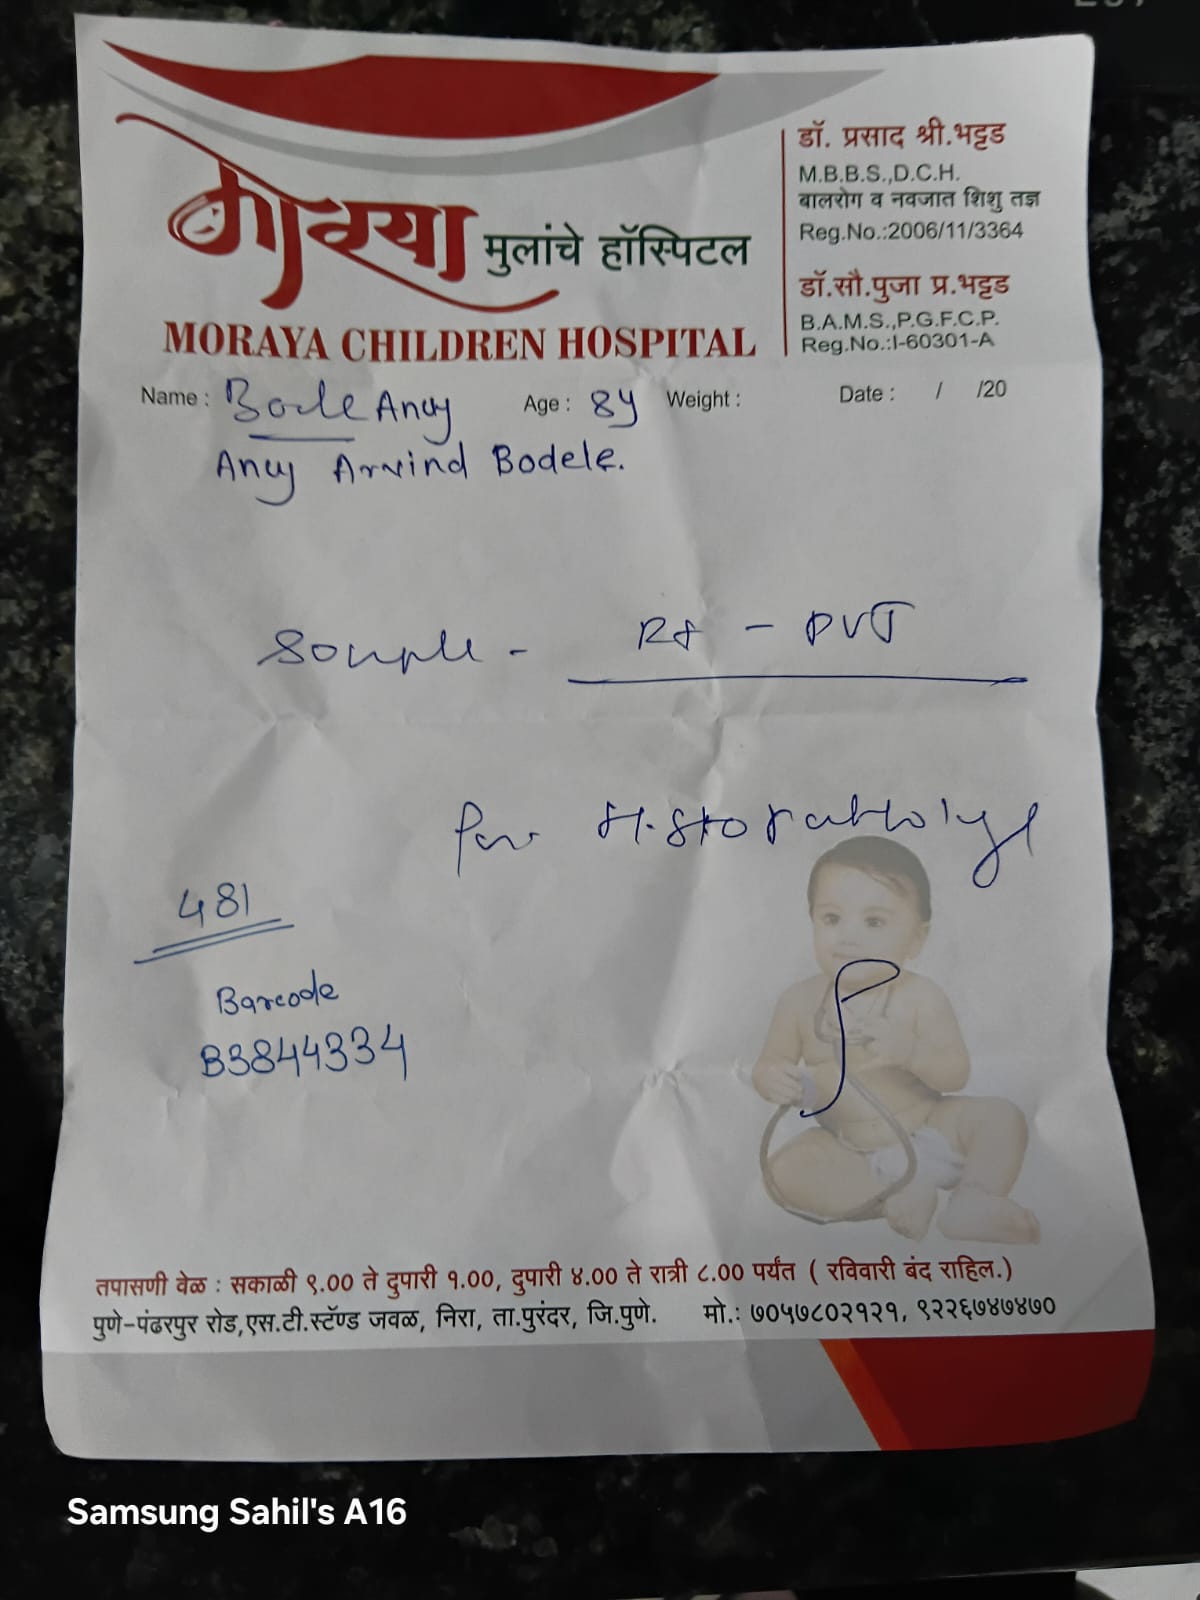 मोरया मुलांचे हॉस्पिटल
MORAYA CHILDREN HOSPITAL
डॉ. प्रसाद श्री.भट्टड
M.B.B.S.,D.C.H.
बालरोग व नवजात शिशु तज्ञ
Reg.No.:2006/11/3364
डॉ.सौ.पुजा प्र.भट्टड
B.A.M.S.,P.G.F.C.P.
Reg.No.:I-60301-A
Name : Age : 8y Weight : Date : / /20
Arvind Bodele.
Rt - PVT
for
481
Barcode
B3844334
तपासणी वेळ : सकाळी ९.00 ते दुपारी १.00, दुपारी ४.00 ते रात्री ८.00 पर्यंत ( रविवारी बंद राहिल.)
पुणे-पंढरपुर रोड,एस.टी.स्टॅण्ड जवळ, निरा, ता.पुरंदर, जि.पुणे. मो.: ७०५७८०२१२१, ९२२६७४७४७०
Samsung Sahil's A16